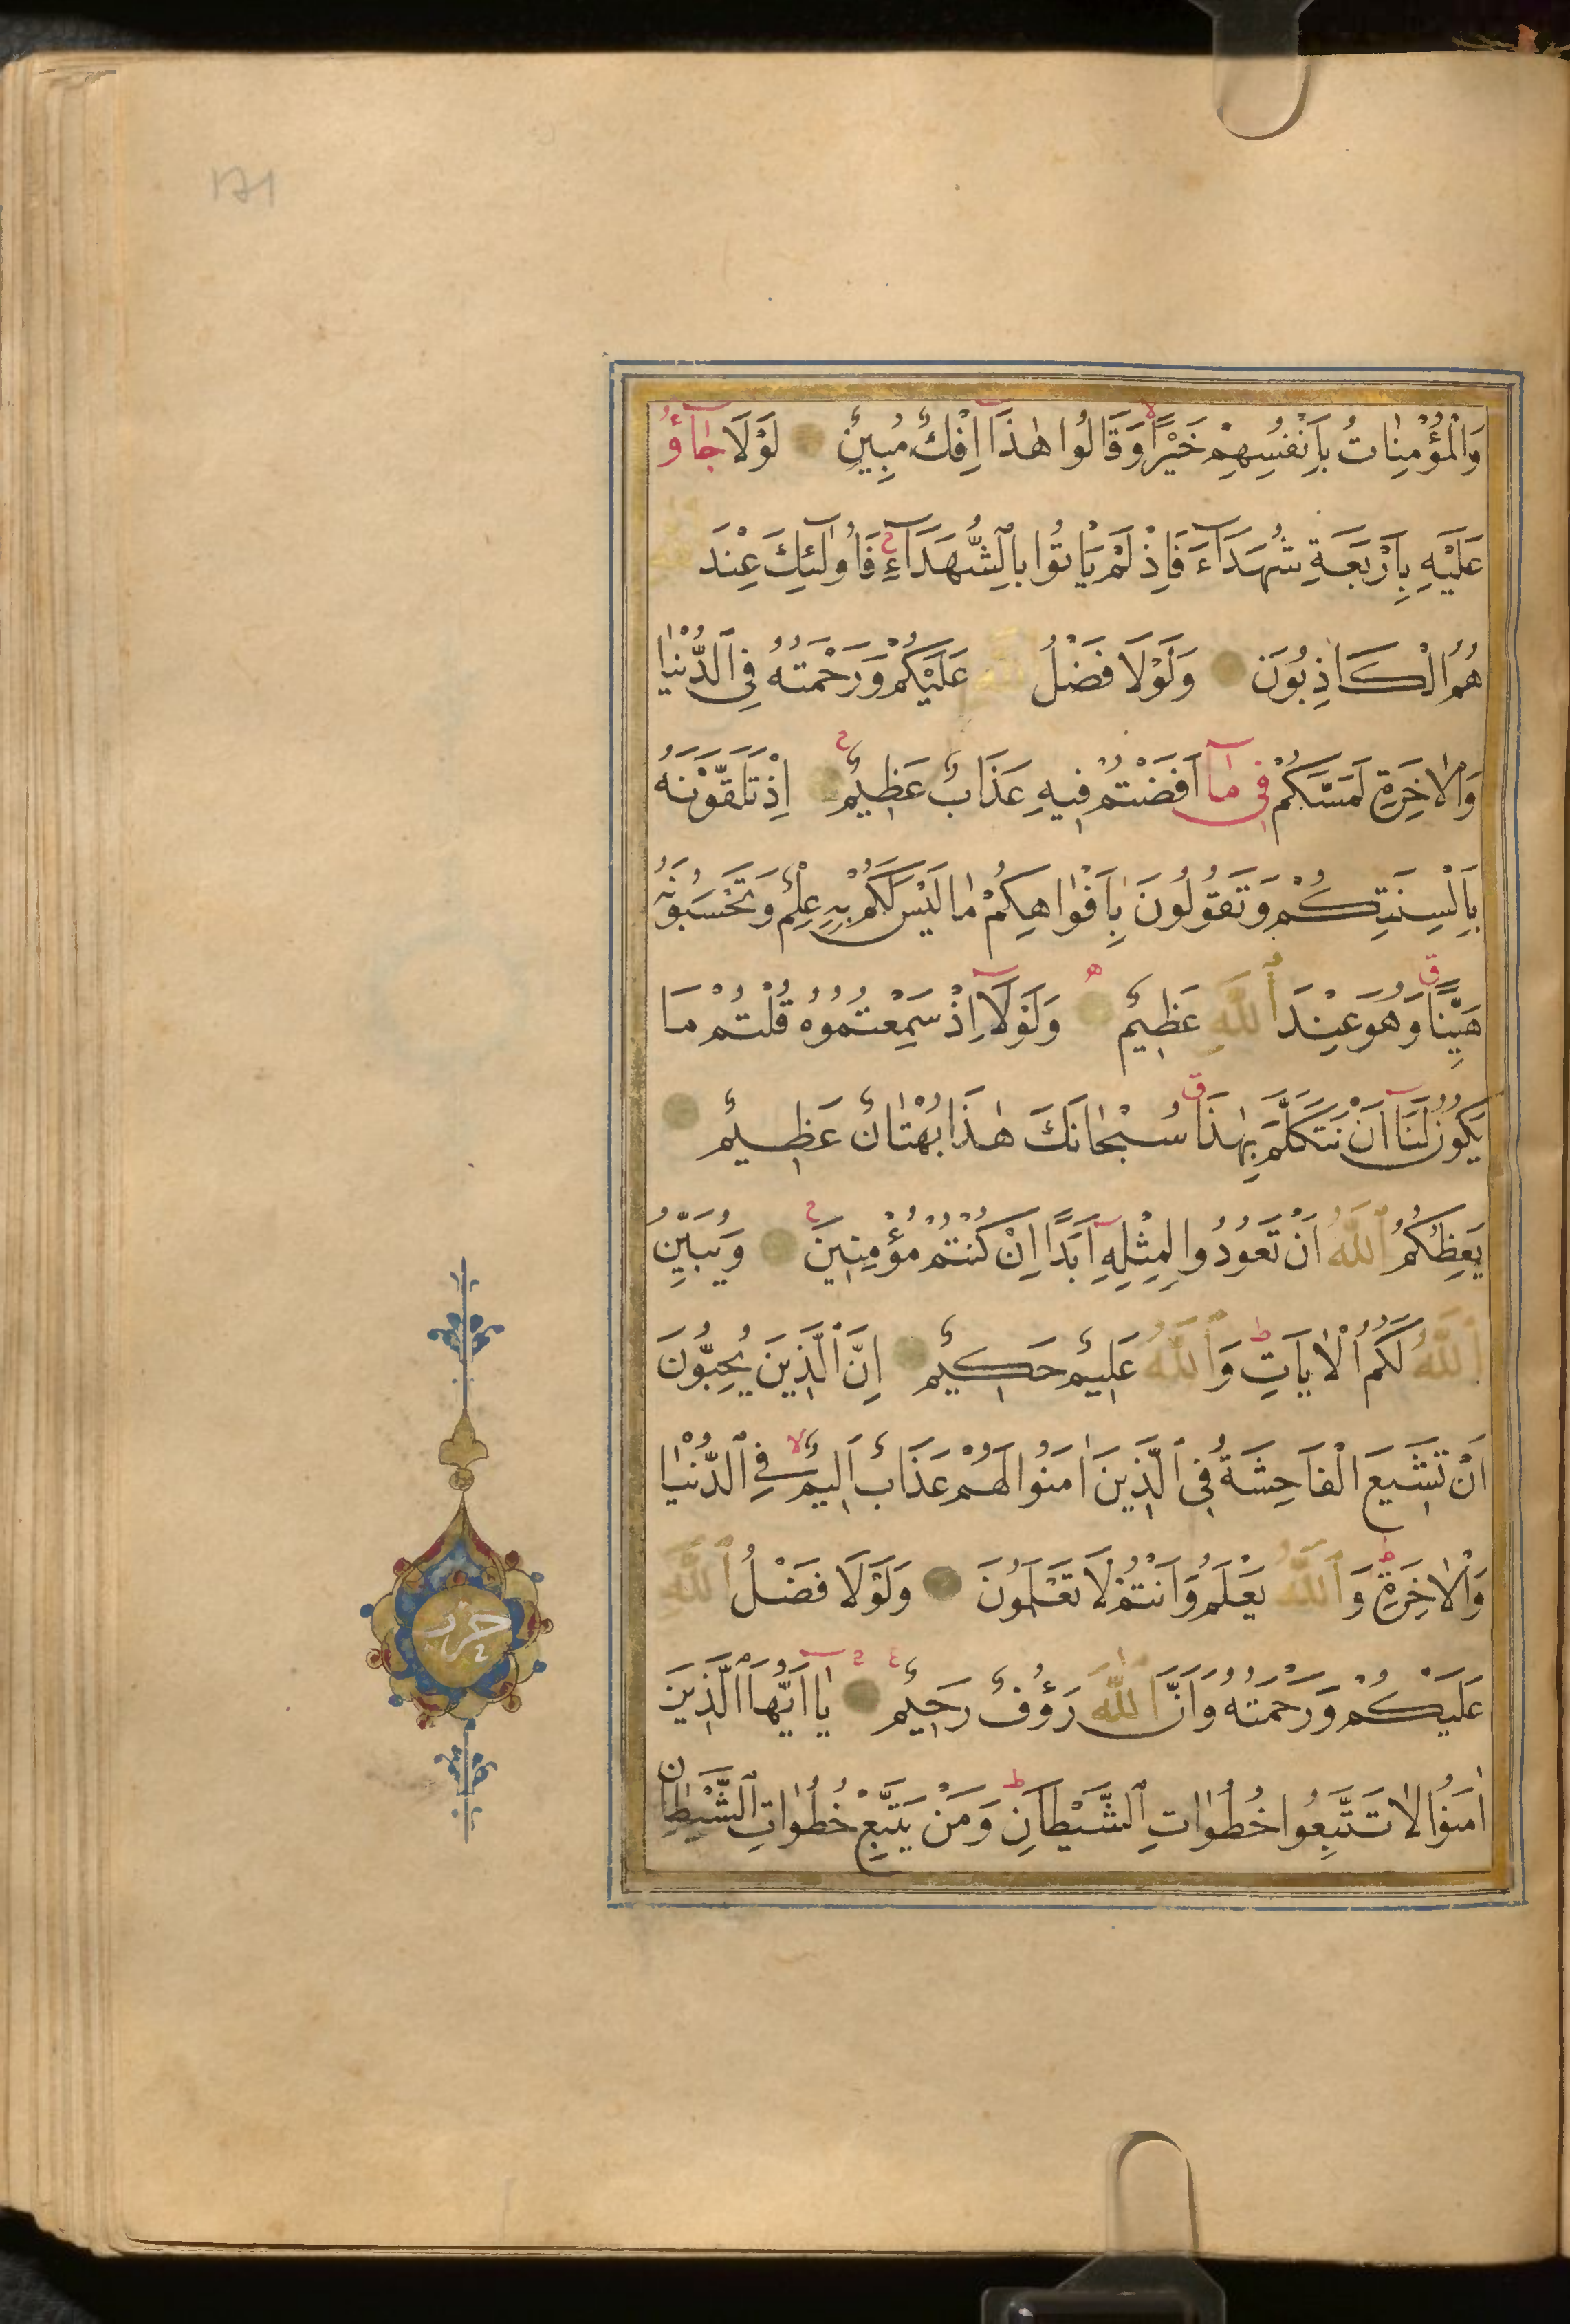 171
وَالْمُؤْمِنَاتُ بِاَنْفُسِهِمْ خَيْرًاۙ وَقَالُوا هٰذَٓا اِفْكٌ مُبِينٌ لَوْلَا جَٓاؤُ
عَلَيْهِ بِاَرْبَعَةِ شُهَدَٓاءَ فَاِذْ لَمْ يَاْتُوا بِالشُّهَدَٓاءِ فَاُولٰٓئِكَ عِنْدَ اللّٰهِ
هُمُ الْكَاذِبُونَ وَلَوْلَا فَضْلُ اللّٰهِ عَلَيْكُمْ وَرَحْمَتُهُ فِي الدُّنْيَا
وَالْاٰخِرَةِ لَمَسَّكُمْ فِي مَٓا اَفَضْتُمْ فِيهِ عَذَابٌ عَظِيمٌ ۚ اِذْ تَلَقَّوْنَهُ
بِاَلْسِنَتِكُمْ وَتَقُولُونَ بِاَفْوَاهِكُمْ مَا لَيْسَ لَكُمْ بِهِ عِلْمٌ وَتَحْسَبُونَهُ
هَيِّنًاۗ وَهُوَ عِنْدَ اللّٰهِ عَظِيمٌ وَلَوْلَٓا اِذْ سَمِعْتُمُوهُ قُلْتُمْ مَا
يَكُونُ لَنَٓا اَنْ نَتَكَلَّمَ بِهٰذَاۗ سُبْحَانَكَ هٰذَا بُهْتَانٌ عَظِيمٌ
يَعِظُكُمُ اللّٰهُ اَنْ تَعُودُوا لِمِثْلِهِٓ اَبَدًا اِنْ كُنْتُمْ مُؤْمِنِينَ ۚ وَيُبَيِّنُ
اللّٰهُ لَكُمُ الْاٰيَاتِۜ وَاللّٰهُ عَلِيمٌ حَكِيمٌ اِنَّ الَّذِينَ يُحِبُّونَ
اَنْ تَشِيعَ الْفَاحِشَةُ فِي الَّذِينَ اٰمَنُوا لَهُمْ عَذَابٌ اَلِيمٌۙ فِي الدُّنْيَا
وَالْاٰخِرَةِۜ وَاللّٰهُ يَعْلَمُ وَاَنْتُمْ لَا تَعْلَمُونَ وَلَوْلَا فَضْلُ اللّٰهِ
عَلَيْكُمْ وَرَحْمَتُهُ وَاَنَّ اللّٰهَ رَؤُفٌ رَحِيمٌ يَٓا اَيُّهَا الَّذِينَ
اٰمَنُوا لَا تَتَّبِعُوا خُطُوَاتِ الشَّيْطَانِۜ وَمَنْ يَتَّبِعْ خُطُوَاتِ الشَّيْطَانِ
حزب